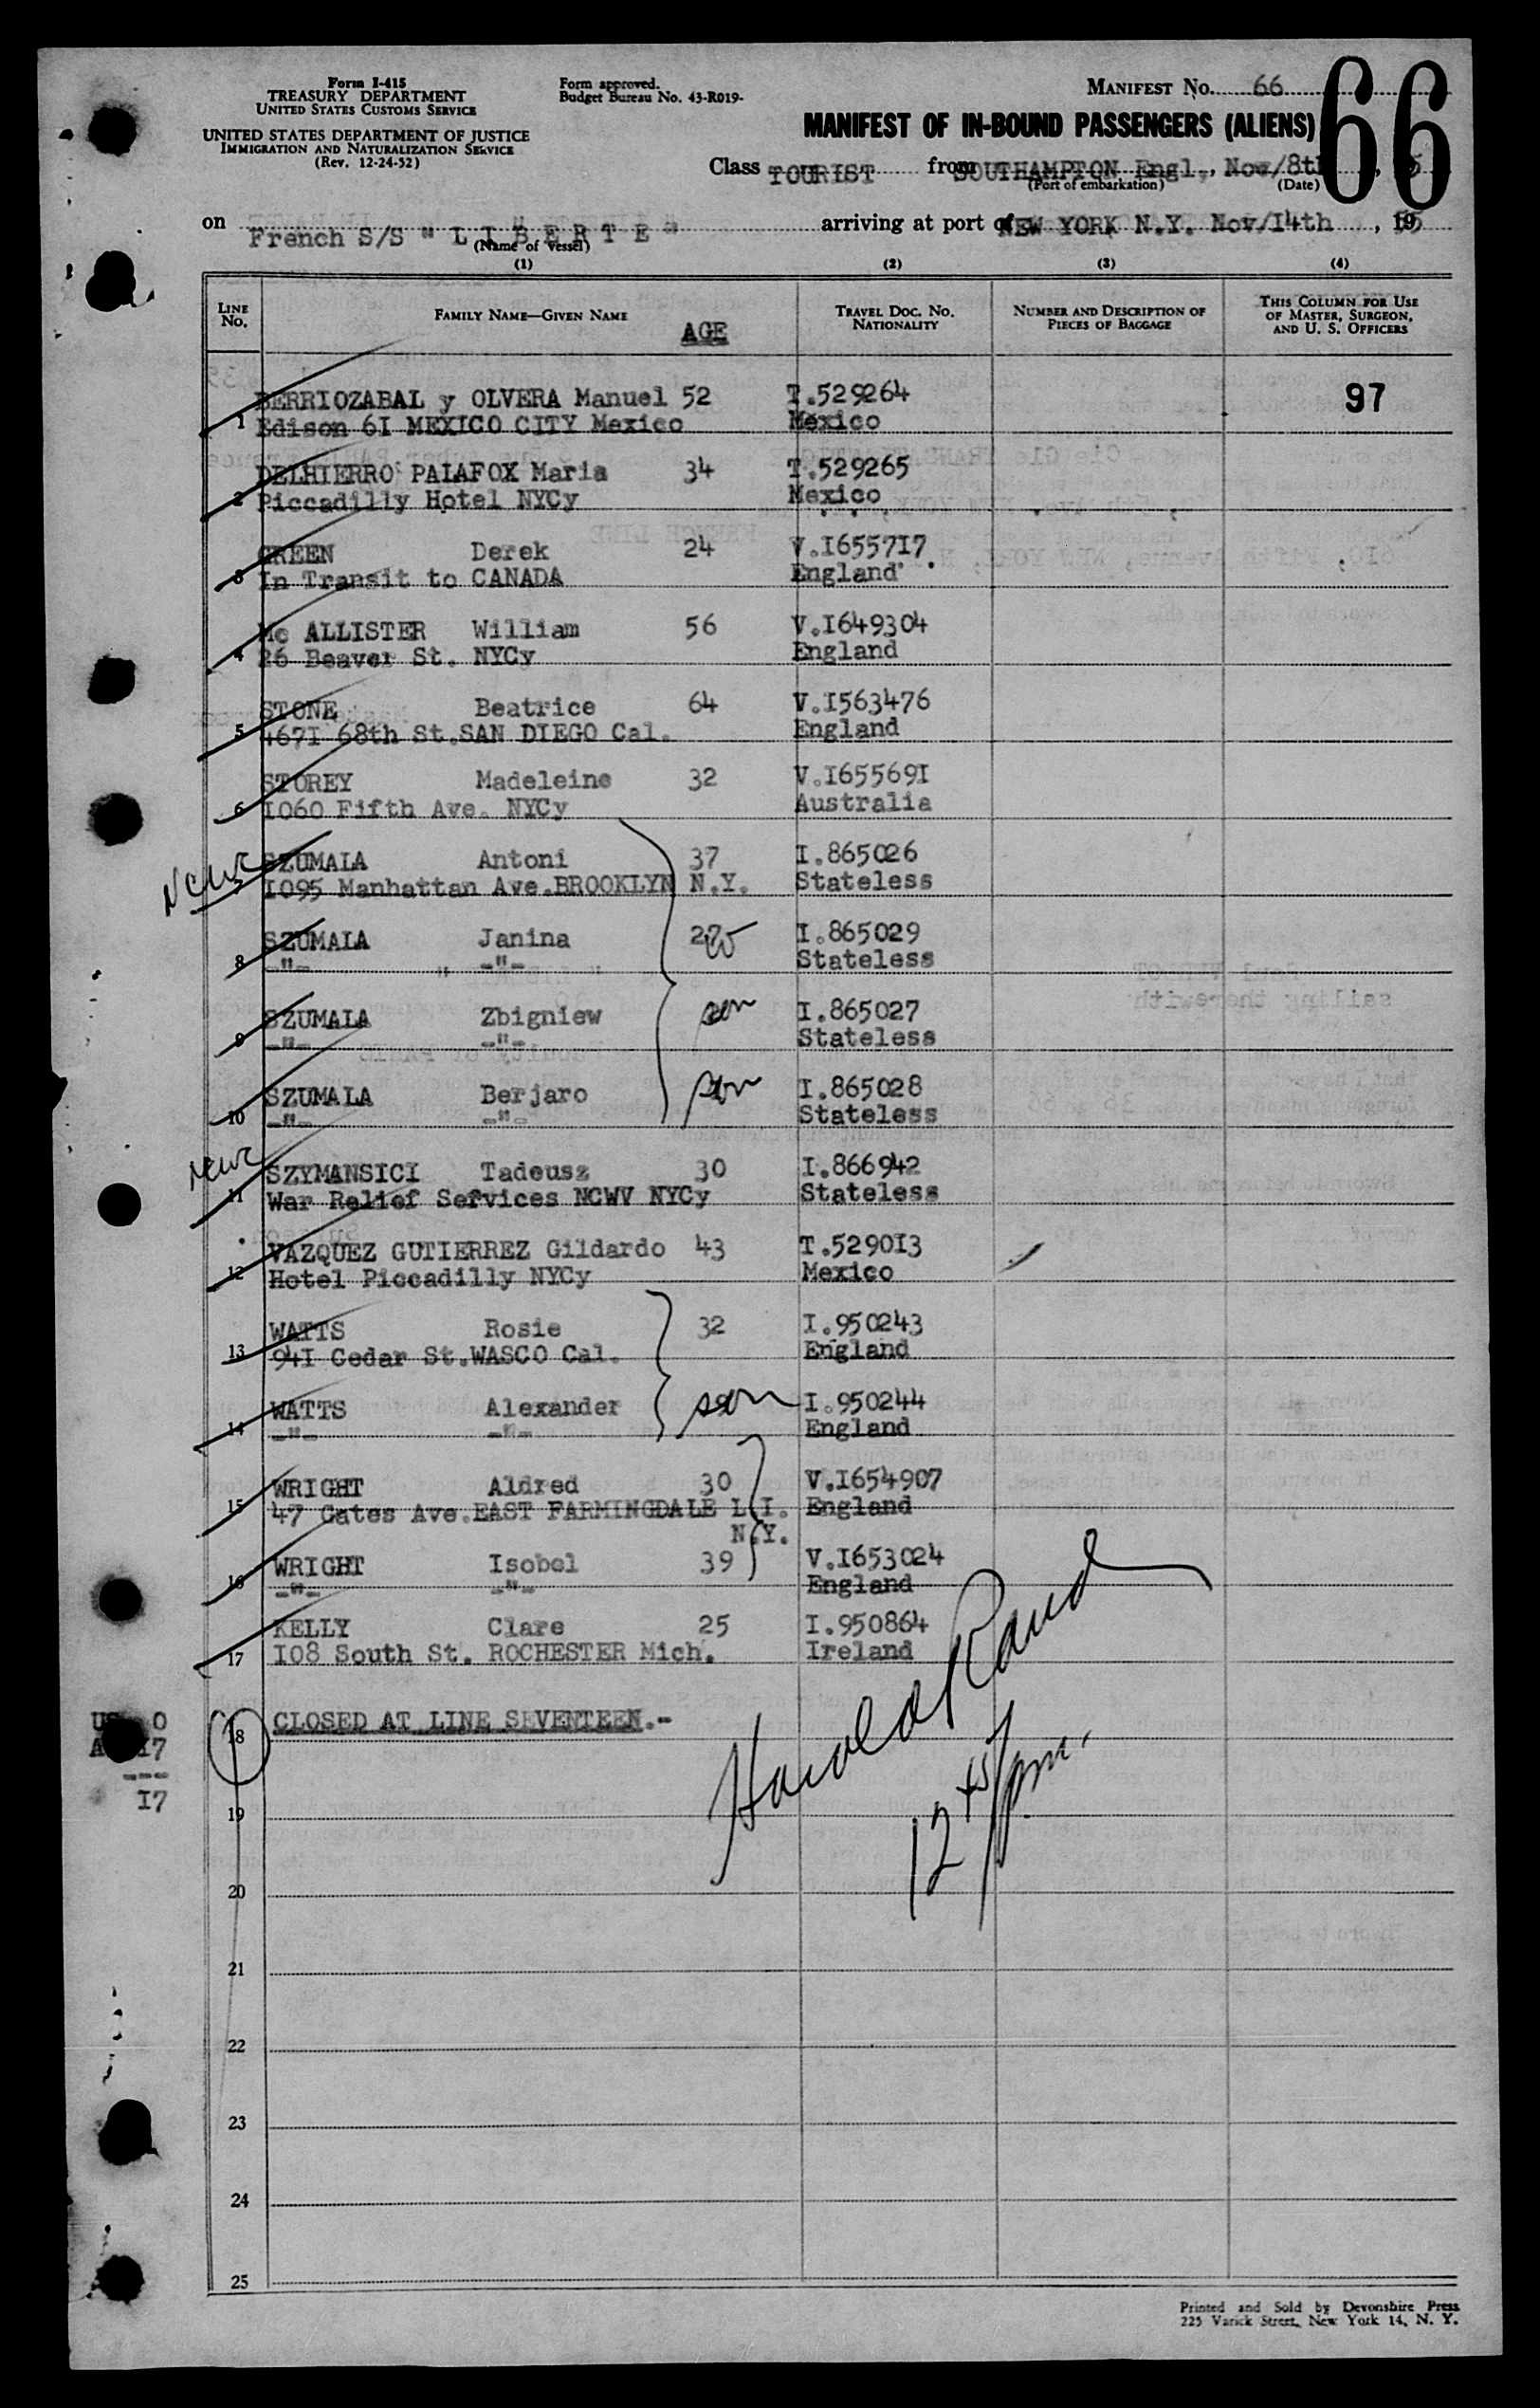 Form I-415
TREASURY DEPARTMENT
UNITED STATES CUSTOMS SERVICE
UNITED STATES DEPARTMENT OF JUSTICE
IMMIGRATION AND NATURALIZATION SERVICE
(Rev. 12-24-52)
Form approved.
Budget Bureau No. 43-R019-
MANIFEST NO. 66
66
MANIFEST OF IN-BOUND PASSENGERS (ALIENS)
Class TOURIST from SOUTHAMPTON Engl., Nov/8th
(Port of embarkation) (Date)
on French S/S "LIBERTE" arriving at port of NEW YORK N.Y. Nov/14th, 1955
(Name of vessel)
(1) (2) (3) (4)
LINE No. FAMILY NAME—GIVEN NAME AGE TRAVEL DOC. NO. NATIONALITY NUMBER AND DESCRIPTION OF PIECES OF BAGGAGE THIS COLUMN FOR USE OF MASTER, SURGEON, AND U. S. OFFICERS
BERRIOZABAL y OLVERA Manuel 52 T.529264 97
1 Edison 6I MEXICO CITY Mexico Mexico
DELHIERRO PALAFOX Maria 34 T.529265
2 Piccadilly Hotel NYCy Mexico
GREEN Derek 24 V.I655717
3 In Transit to CANADA England
Mc ALLISTER William 56 V.I649304
4 26 Beaver St. NYCy England
STONE Beatrice 64 V.I563476
5 467I 68th St.SAN DIEGO Cal. England
STOREY Madeleine 32 V.I65569I
6 I060 Fifth Ave. NYCy Australia
SZUMALA Antoni 37 I.865026
I095 Manhattan Ave.BROOKLYN N.Y. Stateless
SZUMALA Janina I.865029
8 -"- -"- Stateless
SZUMALA Zbigniew son I.865027
9 -"- -"- Stateless
SZUMALA Berjaro son I.865028
10 -"- -"- Stateless
SZYMANSICI Tadeusz 30 I.866942
11 War Relief Services NCWV NYCy Stateless
VAZQUEZ GUTIERREZ Gildardo 43 T.5290I3
12 Hotel Piccadilly NYCy Mexico
WATTS Rosie 32 I.950243
13 94I Cedar St.WASCO Cal. England
WATTS Alexander son I.950244
14 -"- -"- England
WRIGHT Aldred 30 V.I654907
15 47 Gates Ave.EAST FARMINGDALE L.I. England
N.Y.
WRIGHT Isobel 39 V.I653024
16 -"- -"- England
KELLY Clare 25 I.950864
17 I08 South St. ROCHESTER Mich. Ireland
US 0
18 CLOSED AT LINE SEVENTEEN.-
A I7
---
I7
Harold Rand
12 45/pm.
19
20
21
22
23
24
25
Printed and Sold by Devonshire Press
225 Varick Street, New York 14, N. Y.